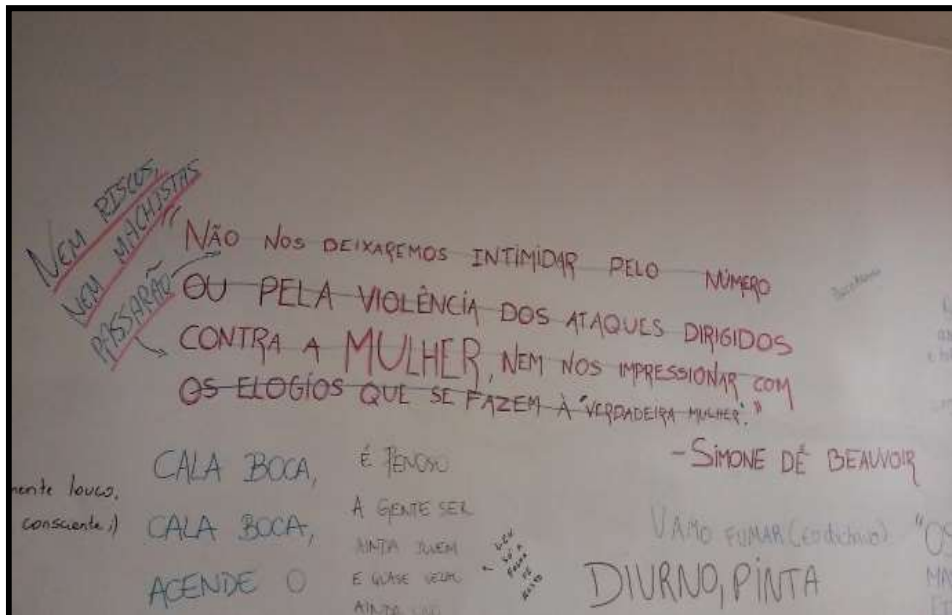 NEM RISCOS,
NEM MACHISTAS
PASSARÃO
"NÃO NOS DEIXAREMOS INTIMIDAR PELO NÚMERO
OU PELA VIOLÊNCIA DOS ATAQUES DIRIGIDOS
CONTRA A MULHER, NEM NOS IMPRESSIONAR COM
OS ELOGÍOS QUE SE FAZEM À "VERDADEIRA MULHER"."
- SIMONE DE BEAUVOIR
mente louco,
consciente,)
CALA BOCA,
CALA BOCA,
ACENDE O
É PENOSO
A GENTE SER
AINDA JOVEM
E QUASE
AINDA
VAMO FUMAR
DIURNO, PINTA